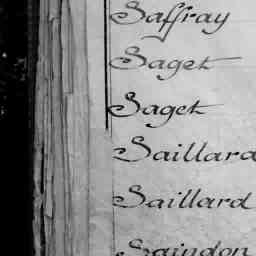 Saffray
Saget
Saget
Saillard
Saillard
Saindon